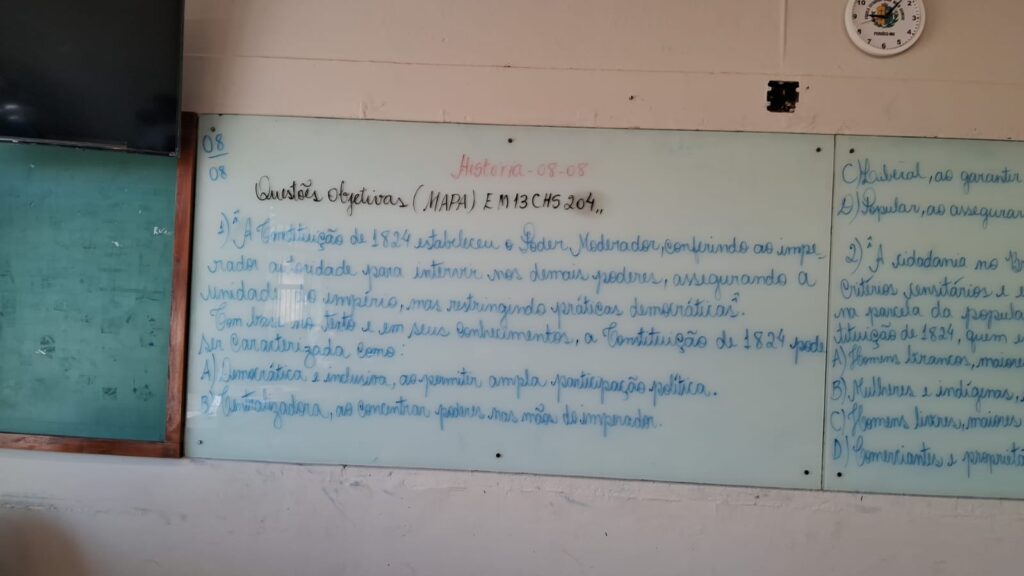 08
08
História - 08-08
Questões Objetivas (MAPA) EM13CHS204,,
1) "A Constituição de 1824 estabeleceu o Poder Moderador, conferindo ao impe-
rador autoridade para intervir nos demais poderes, assegurando a
unidade do império, mas restringindo práticas democráticas."
Com base no texto e em seus conhecimentos, a Constituição de 1824 pode
ser caracterizada como:
A) Democrática e inclusiva, ao permitir ampla participação política.
B) Centralizadora, ao concentrar poderes nas mãos do imperador.
C) Liberal, ao garantir
D) Popular, ao assegurar
2) "A cidadania no
critérios censitários e
na parcela da popula
tituição de 1824, quem
A) Homens brancos, maiores
B) Mulheres e indígenas,
C) Homens livres, maiores
D) Comerciantes e proprietá